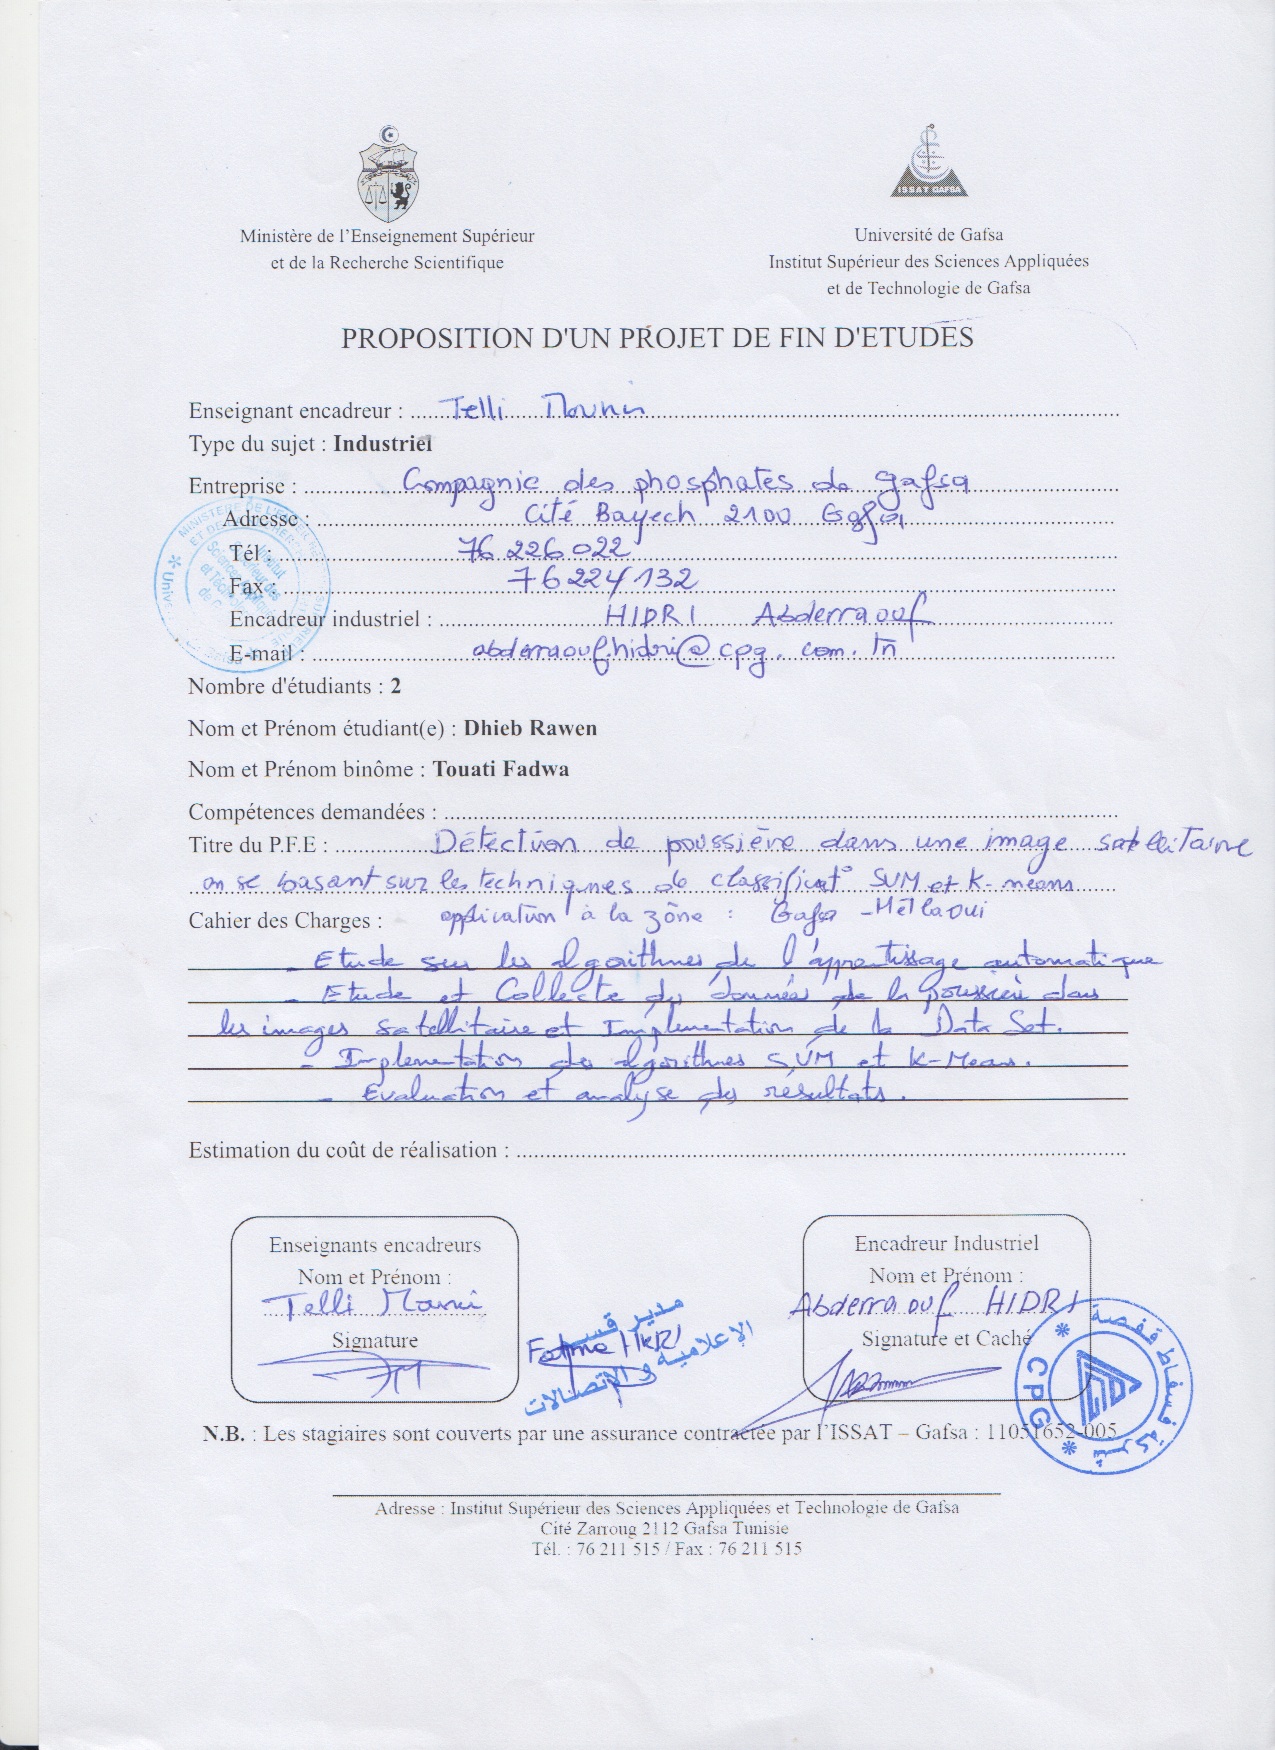 ISSAT GAFSA
Ministère de l'Enseignement Supérieur
et de la Recherche Scientifique
Université de Gafsa
Institut Supérieur des Sciences Appliquées
et de Technologie de Gafsa
PROPOSITION D'UN PROJET DE FIN D'ETUDES
Enseignant encadreur : Telli Mounir
Type du sujet : Industriel
Entreprise : Compagnie des phosphates de gafsa
Adresse : Cité Bayech 2100 Gafsa
Tél : 76 226 022
Fax : 76 224 132
Encadreur industriel : HIDRI Abderraouf
E-mail : abderraouf.hidri@cpg.com.tn
Nombre d'étudiants : 2
Nom et Prénom étudiant(e) : Dhieb Rawen
Nom et Prénom binôme : Touati Fadwa
Compétences demandées :
Titre du P.F.E : Détection de poussière dans une image satellitaire
en se basant sur les techniques de classificat° SVM et K-means
Cahier des Charges : application à la zône : Gafsa - Métlaoui
- Etude sur les algorithmes de l'apprentissage automatique
- Etude et Collecte des données de la poussière dans
les images satellitaire et Implementation de la Data Set.
- Implementation des algorithmes SVM et K-Means.
- Evaluation et analyse des résultats.
Estimation du coût de réalisation :
Enseignants encadreurs
Nom et Prénom :
Telli Mounir
Signature
مدير قسم
الإعلامية و الإتصالات
Encadreur Industriel
Nom et Prénom :
Abderraouf HIDRI
Signature et Caché
شركة فسفاط قفصة
CPG
N.B. : Les stagiaires sont couverts par une assurance contractée par l'ISSAT – Gafsa : 11051652-005
Adresse : Institut Supérieur des Sciences Appliquées et Technologie de Gafsa
Cité Zarroug 2112 Gafsa Tunisie
Tél. : 76 211 515 / Fax : 76 211 515